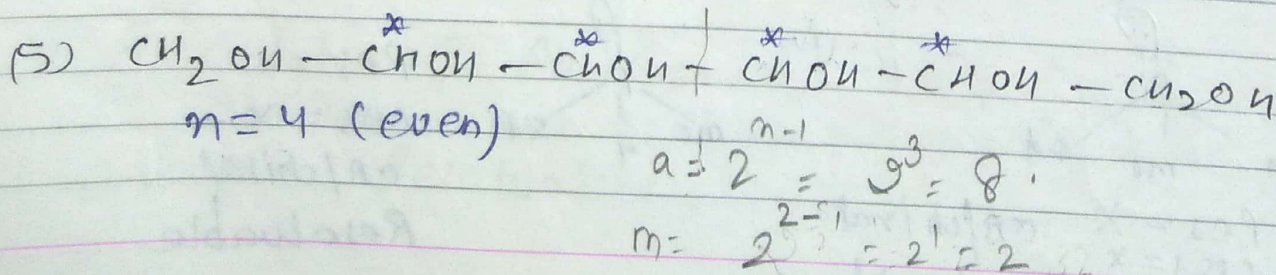 (5) CH₂OH – C*HOH – C*HOH – C*HOH – C*HOH – CH₂OH
n = 4 (even)
a = 2ⁿ⁻¹ = 2³ = 8.
m = 2²⁻¹ = 2¹ = 2